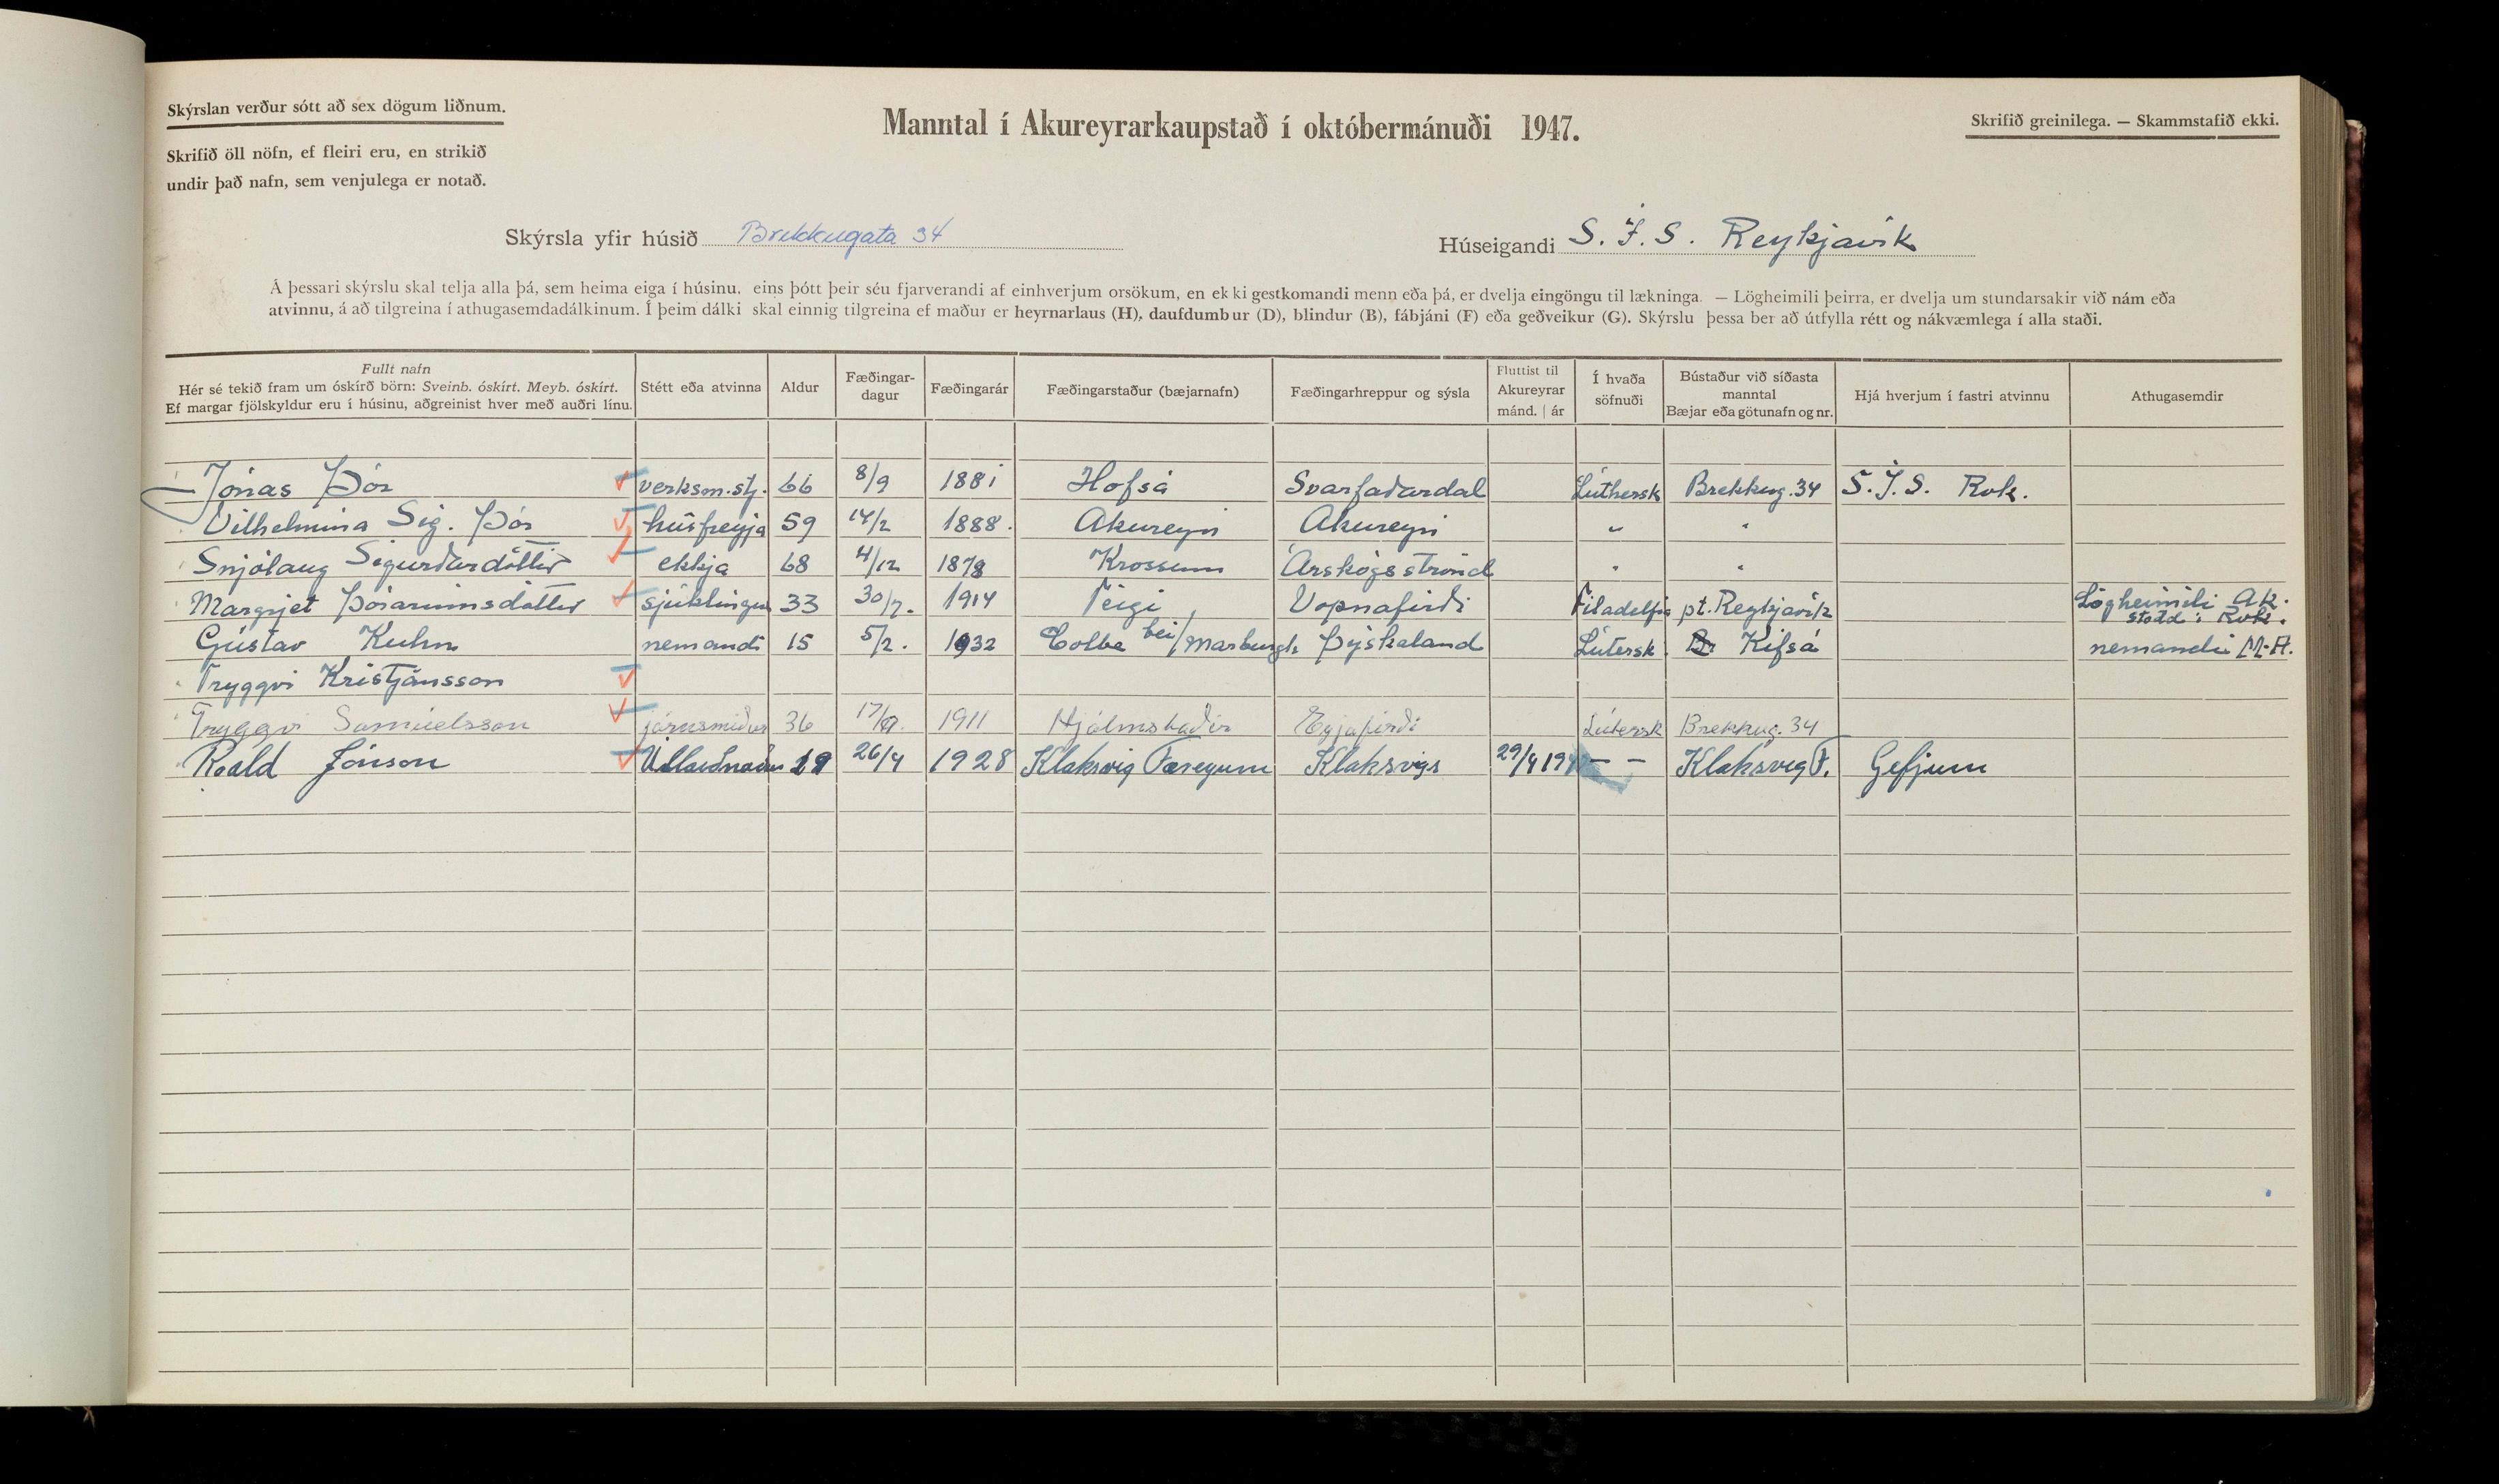 Skýrslan verður sótt að sex dögum liðnum.
Skrifið öll nöfn, ef fleiri eru, en strikið
undir það nafn, sem venjulega er notað.
Manntal í Akureyrarkaupstað í októbermánuði 1947.
Skrifið greinilega. — Skammstafið ekki.
Skýrsla yfir húsið Brekkugata 34
Húseigandi S.Í.S. Reykjavík
Á þessari skýrslu skal telja alla þá, sem heima eiga í húsinu, eins þótt þeir séu fjarverandi af einhverjum orsökum, en ekki gestkomandi menn eða þá, er dvelja eingöngu til lækninga. — Lögheimili þeirra, er dvelja um stundarsakir við nám eða
atvinnu, á að tilgreina í athugasemdadálkinum. Í þeim dálki skal einnig tilgreina ef maður er heyrnarlaus (H), daufdumbur (D), blindur (B), fábjáni (F) eða geðveikur (G). Skýrslu þessa ber að útfylla rétt og nákvæmlega í alla staði.
Fullt nafn
Hér sé tekið fram um óskírð börn: Sveinb. óskírt. Meyb. óskírt.
Ef margar fjölskyldur eru í húsinu, aðgreinist hver með auðri línu.
Stétt eða atvinna
Aldur
Fæðingar-
dagur
Fæðingarár
Fæðingarstaður (bæjarnafn)
Fæðingarhreppur og sýsla
Fluttist til
Akureyrar
mánd. | ár
Í hvaða
söfnuði
Bústaður við síðasta
manntal
Bæjar eða götunafn og nr.
Hjá hverjum í fastri atvinnu
Athugasemdir
Jónas Þór verksm.stj. 66 8/9 1881 Hofsá Svarfaðardal Lúthersk Brekkug. 34 S.Í.S. Rvk.
Vilhelmína Sig. Þór húsfreyja 59 14/2 1888. Akureyri Akureyri " "
Snjólaug Sigurðardóttir ekkja 68 4/12 1878 Krossum Árskógsströnd " "
Margrjet Þórarinsdóttir sjúklingur 33 30/7. 1914 Teigi Vopnafirði Filadelfia pt. Reykjavík Lögheimili Ak.
stödd í Rvk.
Gústav Kuhn nemandi 15 5/2. 1932 Colbe bei/Marburgh Þýskaland Lútersk Kifsá nemandi M.A.
Tryggvi Kristjánsson
Tryggvi Samúelsson járnsmiður 36 17/9. 1911 Hjálmstaðir Eyjafirði Lútersk Brekkug. 34
Roald Jónson Ullariðnaður 19 26/4 1928 Klaksvig Færeyum Klaksvigs 29/4 194 — — Klaksveg F. Gefjum